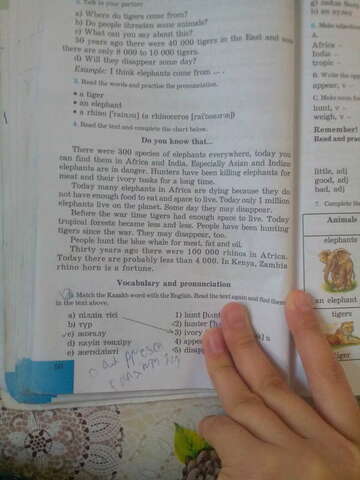 2. Talk to your partner
a) Where do tigers come from?
b) Do people threaten some animals?
c) What can you say about this?
50 years ago there were 40 000 tigers in the East and now
there are only 8 000 to 10 000 tigers.
d) Will they disappear some day?
Example: I think elephants come from ... .
3. Read the words and practise the pronunciation.
• a tiger
• an elephant
• a rhino
4. Read the text and complete the chart below.
Do you know that...
There were 300 species of elephants everywhere, today you
can find them in Africa and India. Especially Asian and Indian
elephants are in danger. Hunters have been killing elephants for
meat and their ivory tusks for a long time.
Today many elephants in Africa are dying because they do
not have enough food to eat and space to live. Today only 1 million
elephants live on the planet. Some day they may disappear.
Before the war time tigers had enough space to live. Today
tropical forests became less and less. People have been hunting
tigers since the war. They may disappear, too.
People hunt the blue whale for meat, fat and oil.
Thirty years ago there were 100 000 rhinos in Africa.
Today there are probably less than 4 000. In Kenya, Zambia
rhino horn is a fortune.
Vocabulary and pronunciation
Match the Kazakh word with the English. Read the text again and find them
in the text above.
a) пілдің тісі 1) hunt
b) түр 2) hunter
c) жоғалу 3) ivory
d) қауіп төндіру 4)
e) жеткілікті 5)
50
g)
6.
A.
Africa –
India –
tropic –
B. Write the
appear, v –
C.
hunt, v –
weigh, v –
Remember!
Read and
little, adj
good, adj
bad, adj
7. Complete
Animals
elephants
an elephant
tigers
tiger